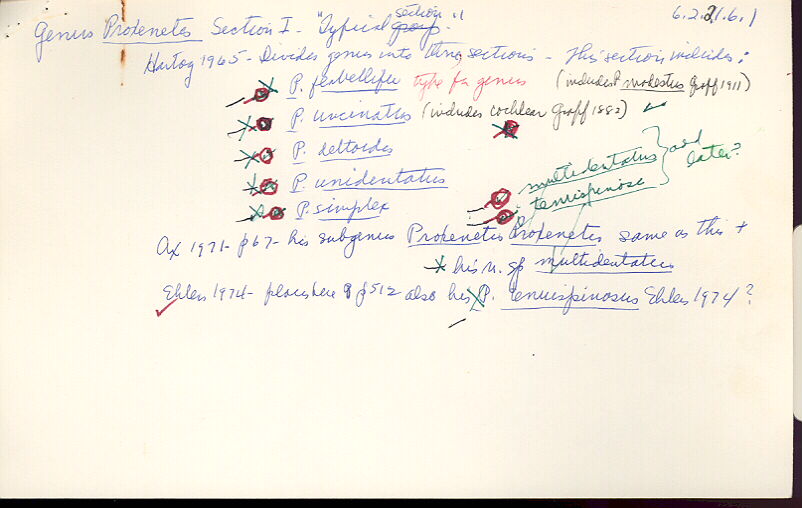 Genus Proxenetes Section I - "Typical group section" 6.2.21.6.1
Hartog 1965 - Divides genus into three sections - This section includes:
P. flabellifer type for genus (includes? modestus Graff 1911)
P. uncinatus (includes cochlear Graff 1882)
P. deltoides
P. unidentatus
P. simplex
multidentatus
tenuispinose
add later?
Ax 1971 - p67 - his subgenus Proxenetes Proxenetes same as this +
his n. sp multidentatus
Ehlers 1974 - places here p512 also his P. tenuispinosus Ehlers 1974?